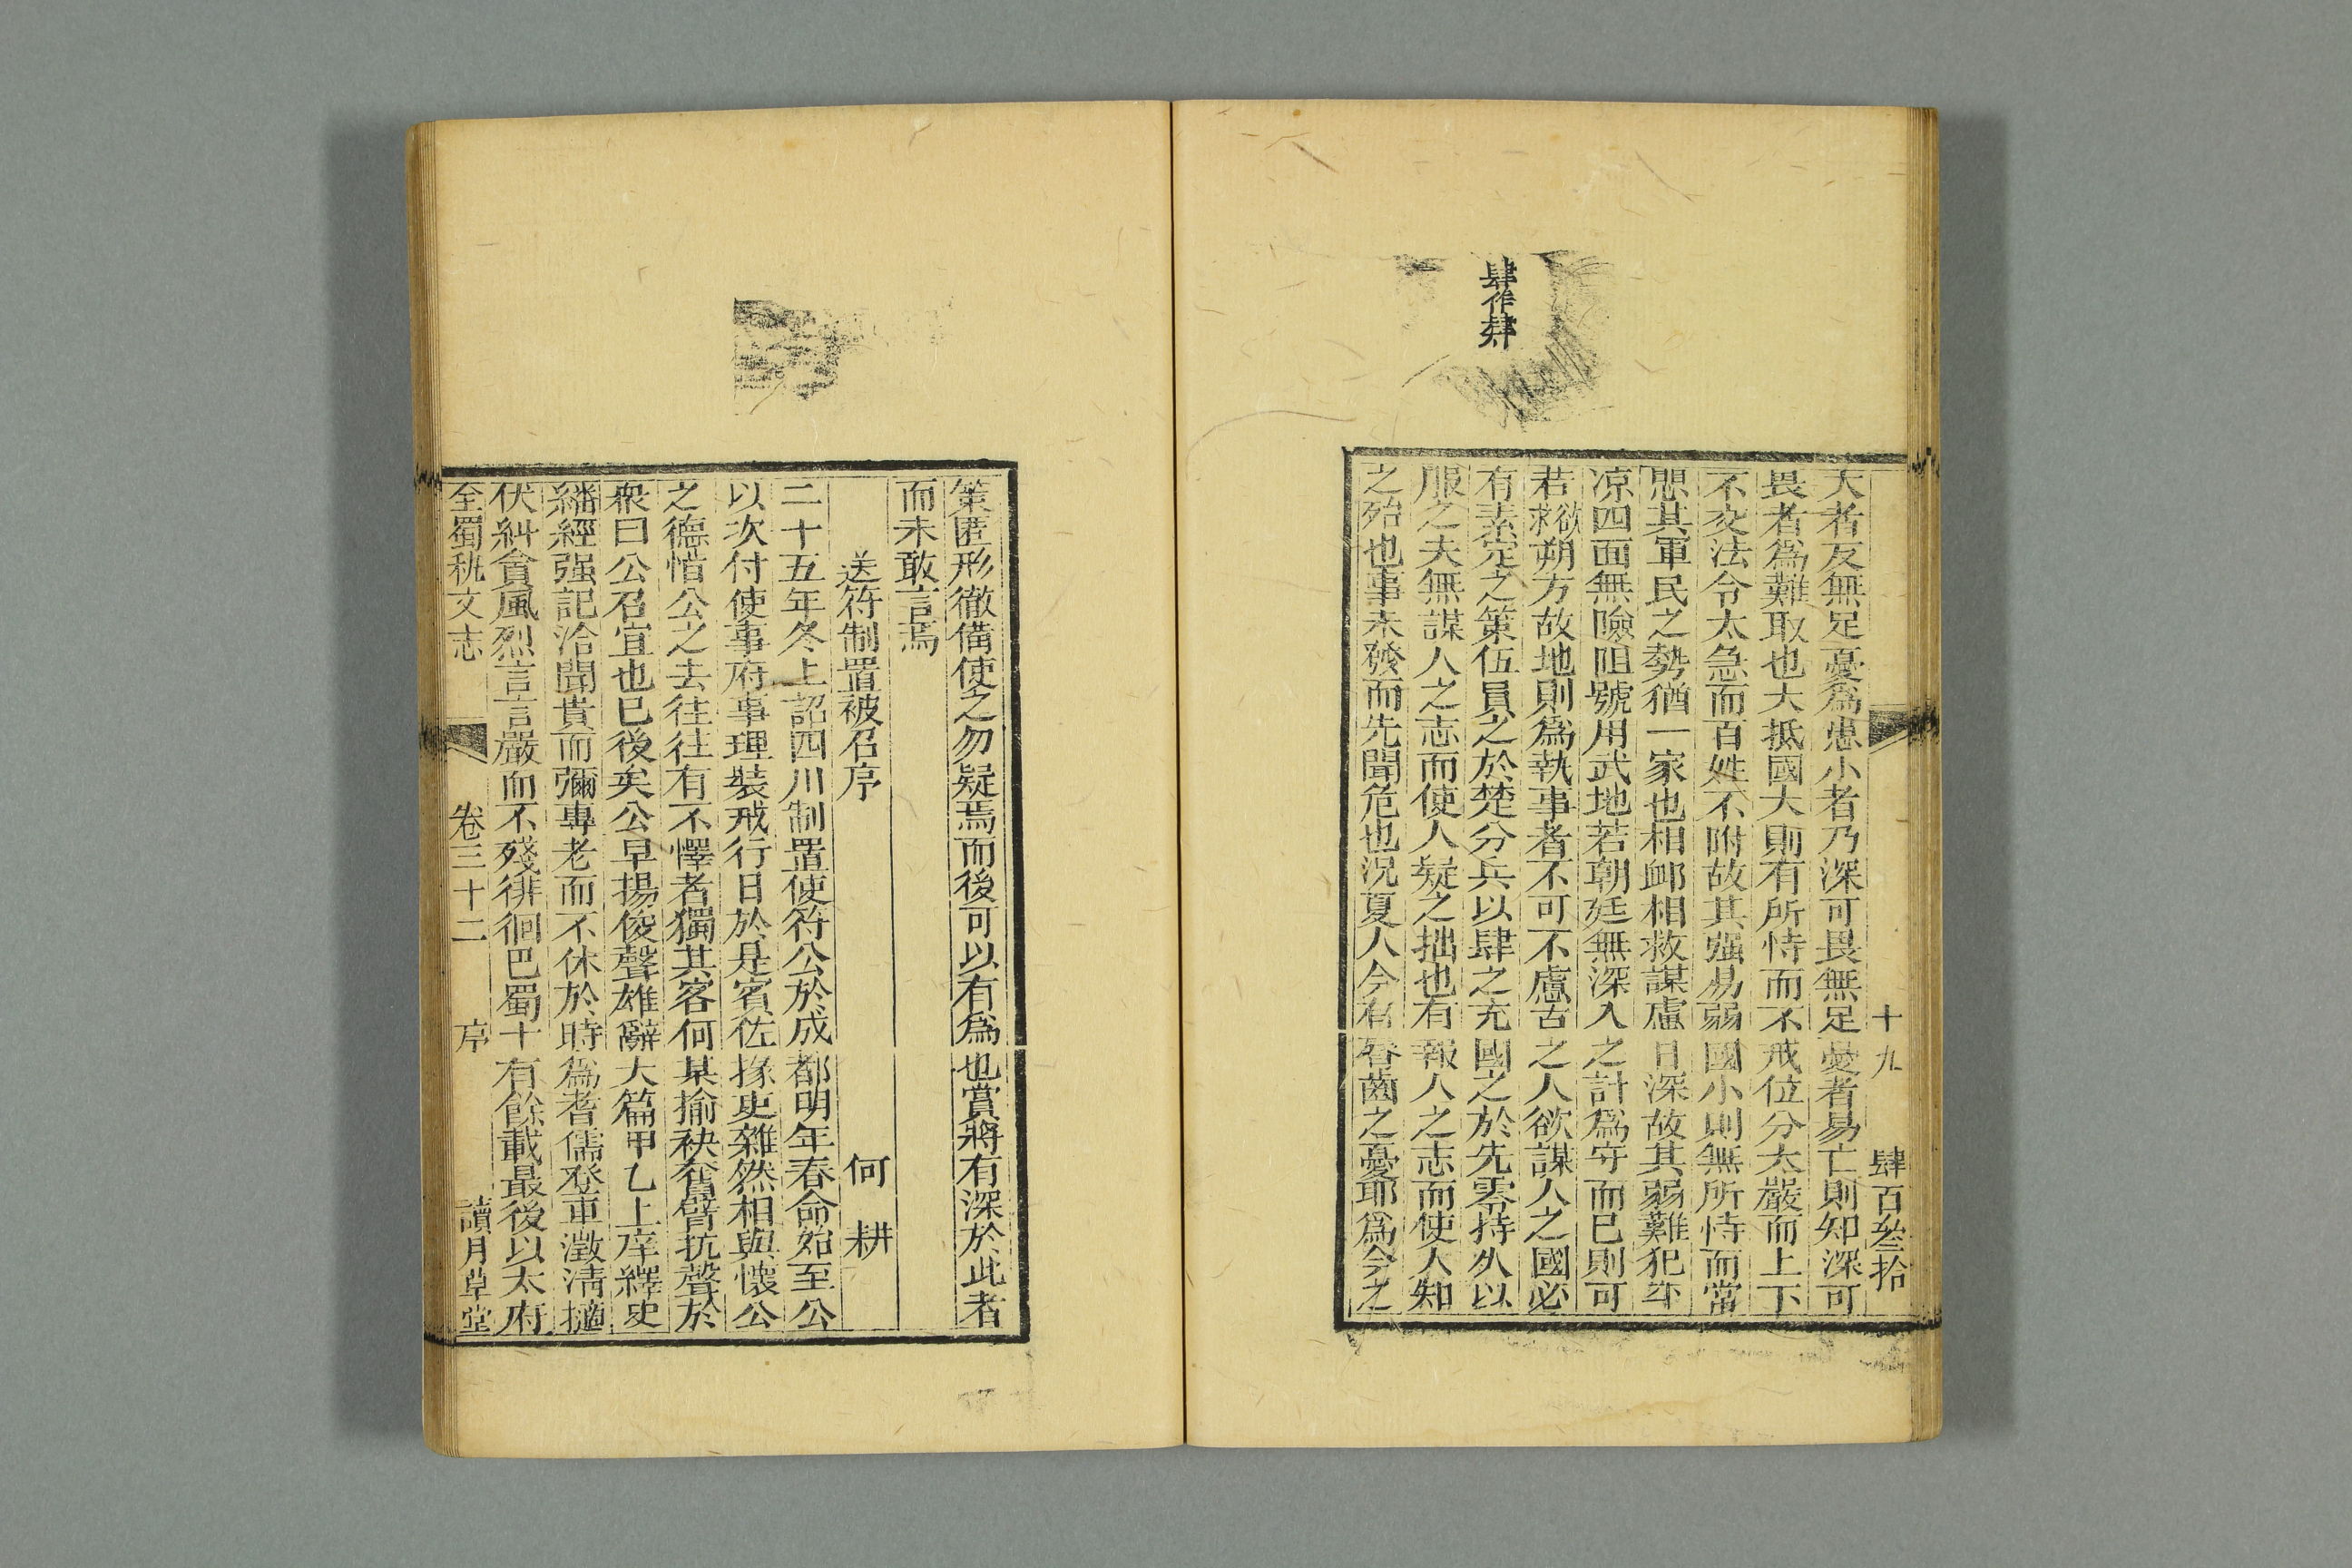 肆作肄
十九 肆百叁拾
大者反無足憂爲患小者乃深可畏無足憂者易亡則知深可
畏者爲難取也大抵國大則有所恃而不戒位分太嚴而上下
不交法令太急而百姓不附故其强易弱國小則無所恃而當
思其軍民之勢猶一家也相卹相救謀慮日深故其弱難犯
凉四面無險阻號用武地若朝廷無深入之計爲守而已則可
若欲救朔方故地則爲執事者不可不慮古之人欲謀人之國必
有素定之策伍員之於楚分兵以肆之充國之於先零持久以
服之夫無謀人之志而使人疑之拙也有報人之志而使人知
之殆也事未發而先聞危也況夏人今有脣齒之憂耶爲今之
策匿形徹備使之勿疑焉而後可以有爲也嘗將有深於此者
而未敢言焉
送符制置被召序 何耕
二十五年冬上詔四川制置使符公於成都明年春命始至公
以次付使事府事理裝戒行日於是賓佐掾吏雜然相與懷公
之德惜公之去往往有不懌者獨其客何某揄袂奮臂抗聲於
衆曰公召宜也已後矣公早揚俊聲雄辭大篇甲乙上庠繹史
繙經强記洽聞貴而彌專老而不休於時爲耆儒登車澂淸擿
伏糾貪風烈言言嚴而不殘徘徊巴蜀十有餘載最後以太府
全蜀秇文志 卷三十二 序 讀月草堂